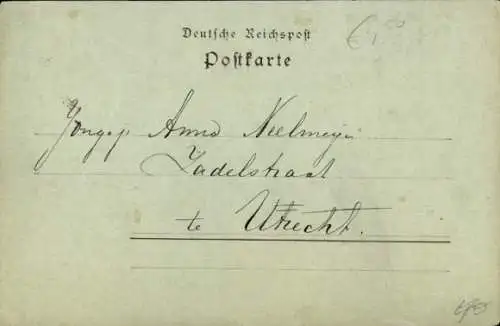 Deutsche Reichspost
€1,00
Postkarte
Jongej Anna Neelmeyer
Zadelstraat
te Utrecht.